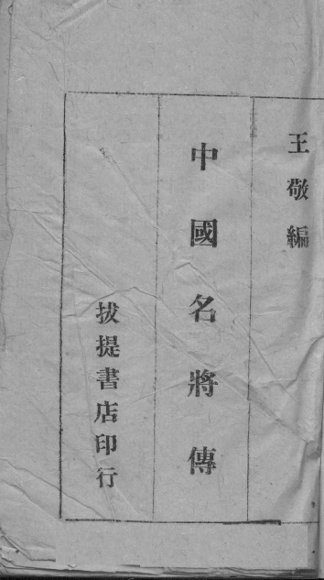 王敬編
中國名將傳
拔提書店印行